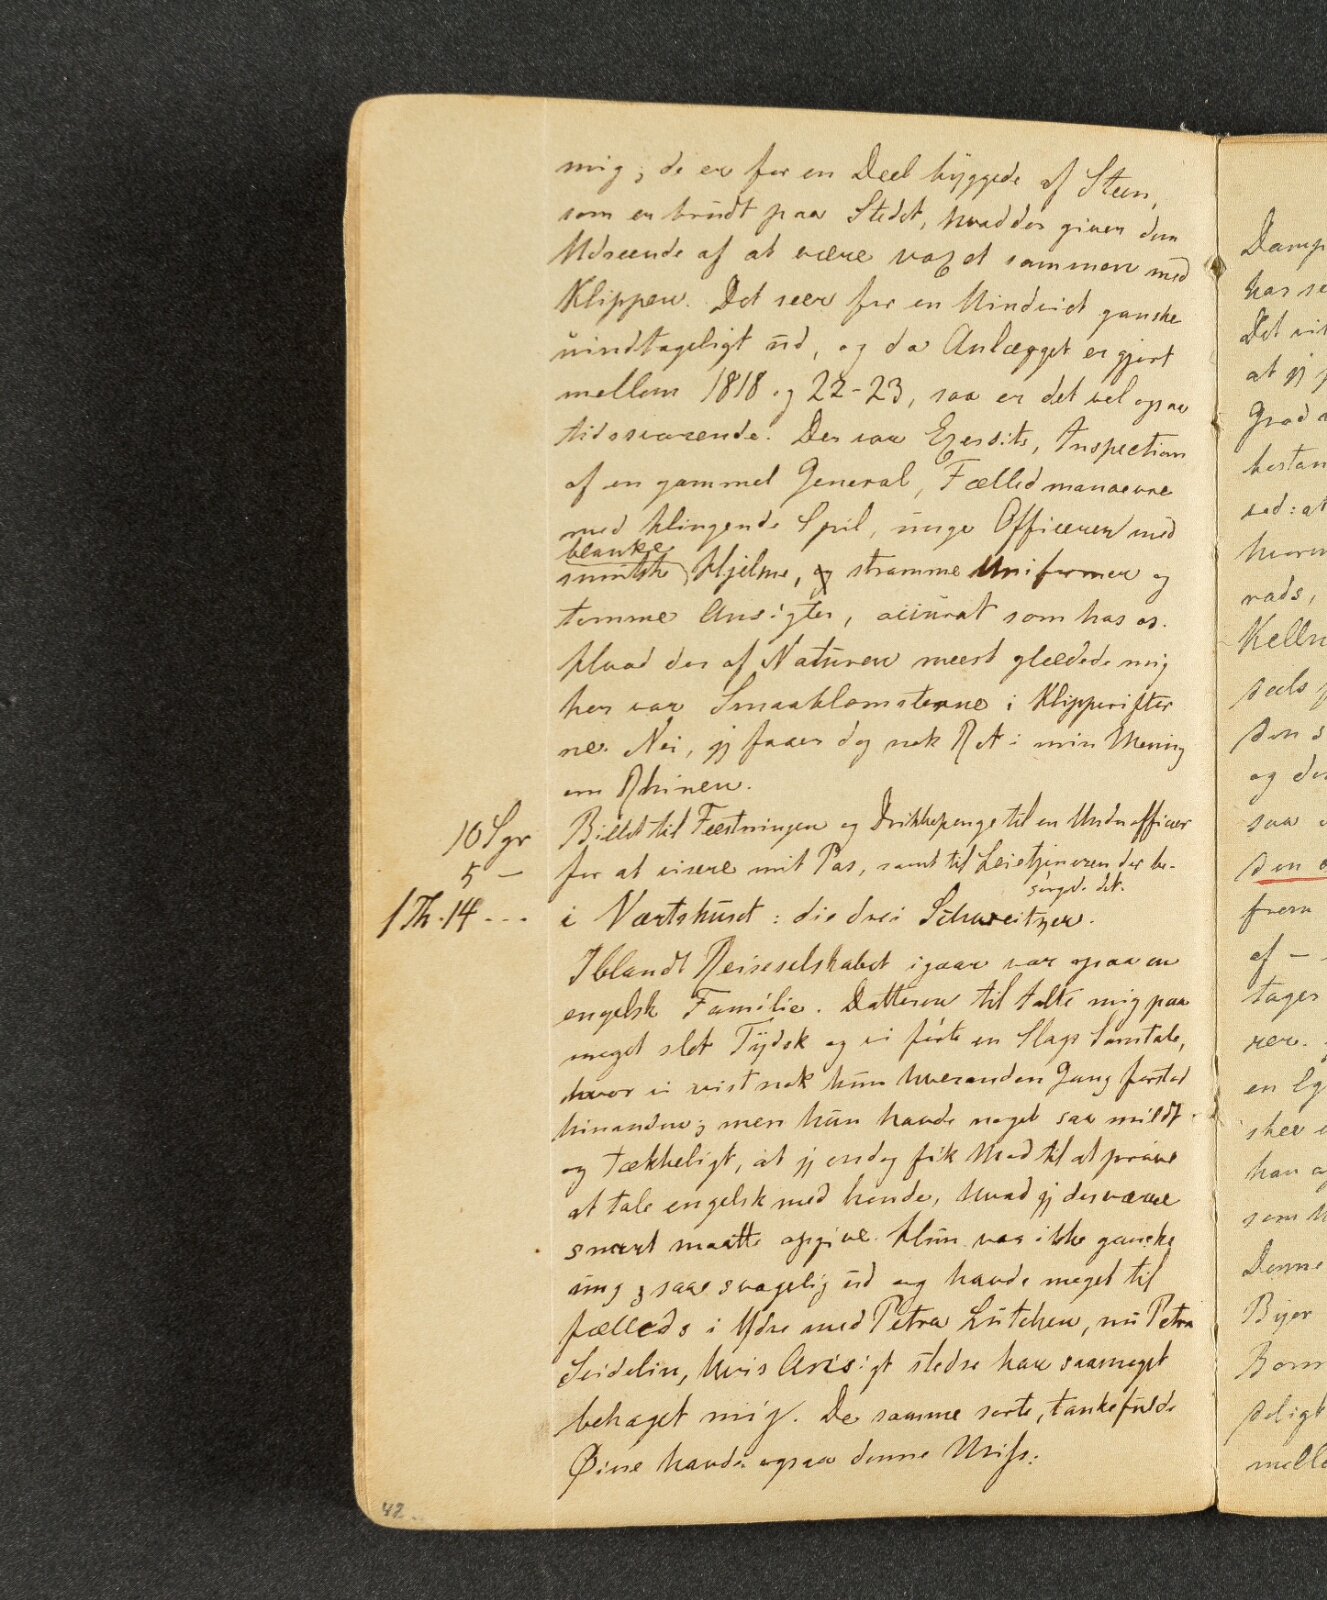 mig; de er for en Deel byggede af Steen,
som er brudt paa Stedet, hvad der giver dem
Udseende af at være voxet sammen med
Klippen. Det seer for en Hindvidt ganske
uindtageligt ud, og da Anlægget er gjort
mellem 1818 og 22-23, saa er det vel ogsaa
tidssvarende. Der var Exersits, Inspection
af en gammel General, Fælledmanoevre
med klingende Spil, unge Officerer med
blanke
Hjelme, og stramme Uniformer og
tomme Ansigter, accurat som hos os.
Hvad der af Naturen meest glædede mig
her var Smaablomsterne i Klipperifter
ne. Nei, jeg faaer dog nok Ret i min Mening
om Rhinen.
10 Sgr Billet til Fæstningen og Drikkepenge til en Underofficer
5 - for at visere mit Pas, samt til Leietjeneren der be-
sørgede det.
1 Th. 14 - - - i Værtshuset: die drei Schweitzer.
Iblandt Reiseselskabet igaar var ogsaa en
engelsk Familie. Datteren tiltalte mig paa
meget slet Tydsk og vi førte en Slags Samtale,
hvor vi vist nok kun hveranden Gang forstod
hinanden; men hun havde noget saa mildt
og tækkeligt, at jeg endog fik Mod til at prøve
at tale engelsk med hende, hvad jeg desværre
snart maatte opgive. Hun var ikke ganske
ung, saae svagelig ud og havde meget til
fælleds i Ydre med Petra Lütchen, nu Petra
Seidelin, hvis Ansigt stedse har saameget
behaget mig. De samme sorte, tankefulde
Øine havde ogsaa denne Miss:
42.
Damp
har se
Det vil
at jeg
Grad a
bestan
ved: at
hvorn
rads,
Kelln
og de
saa
den
frem
af -
tager
rer.
en Eg
skee
han
som
Denne
Byer
Born
deligt
melle